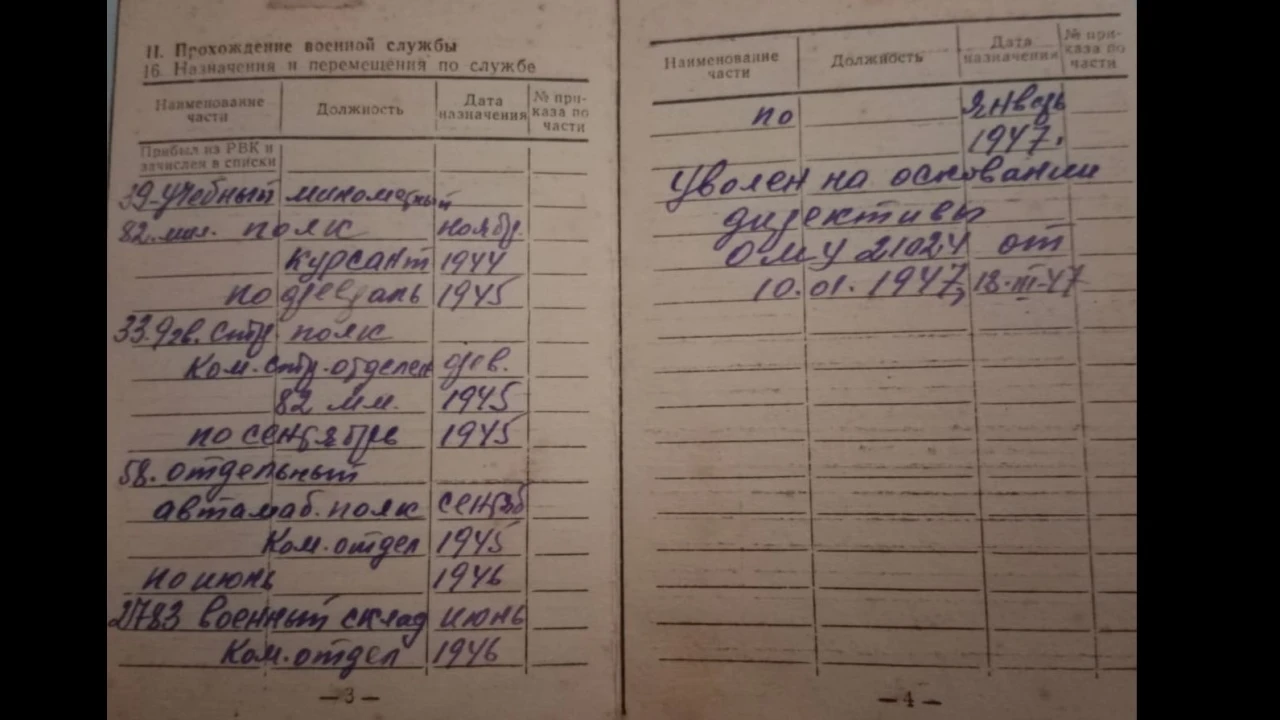 II. Прохождение военной службы
16. Назначения и перемещения по службе
Наименование части Должность Дата назначения № приказа по части
Прибыл из РВК и зачислен в списки
39-учебный минометный
82.мил. полк ноябр.
Курсант 1944
по февраль 1945
33.9гв. стр. полк
Ком.стр.отделен фев.
82 мм. 1945
по сентябрь 1945
58. отдельный
автамаб. полк сентяб
Ком.отдел 1945
по июнь 1946
2783 военный склад июнь
Ком.отдел 1946
— 3 —
Наименование части Должность Дата назначения № приказа по части
по январь
1947.
Уволен на основании
директивы
ОМУ 21024 от
10.01.1947, 18-III-47
— 4 —